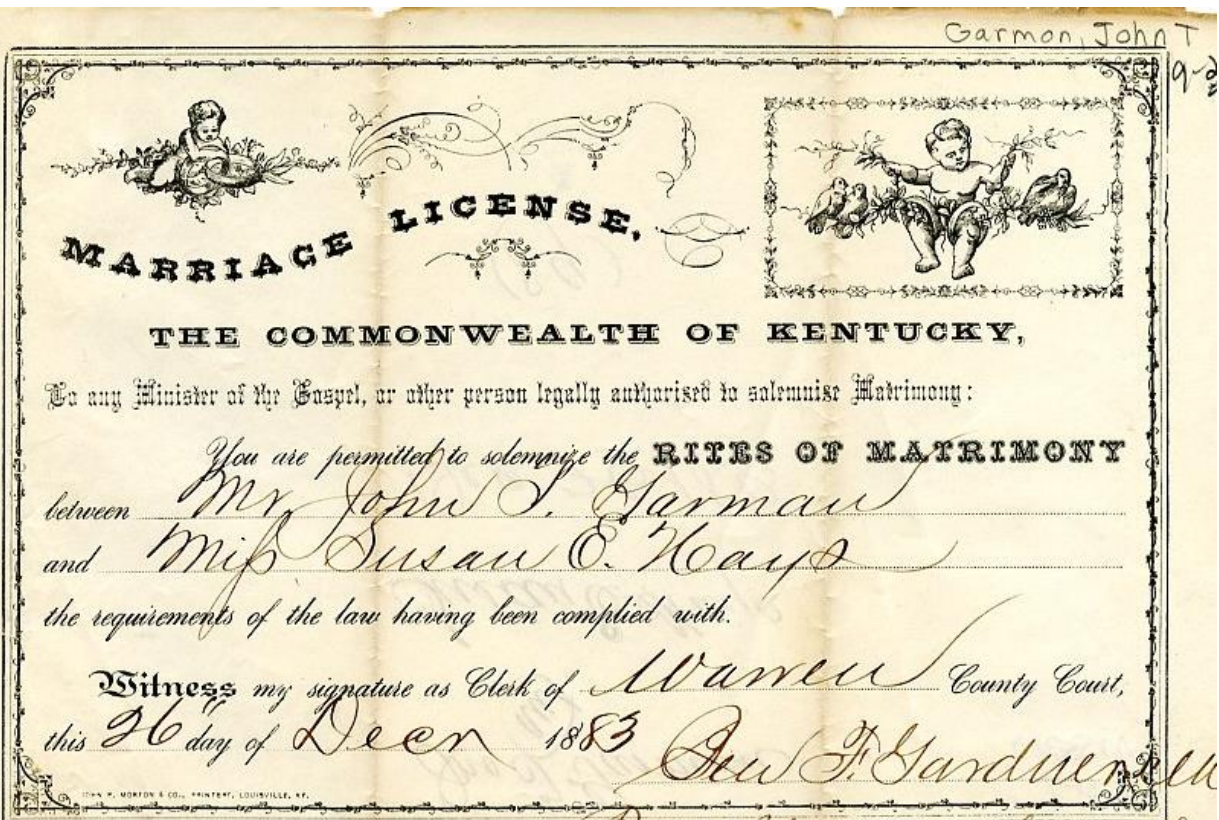 Garmon, John T
MARRIAGE LICENSE,
THE COMMONWEALTH OF KENTUCKY,
To any Minister of the Gospel, or other person legally authorised to solemnise Matrimony:
You are permitted to solemnize the RITES OF MATRIMONY
between Mr. John S. Garman
and Miss Susan E. Hays
the requirements of the law having been complied with.
Witness my signature as Clerk of Warren County Court,
this 26" day of Decr 1883
F. Gardner Clk
JOHN P. MORTON & CO., PRINTERS, LOUISVILLE, KY.